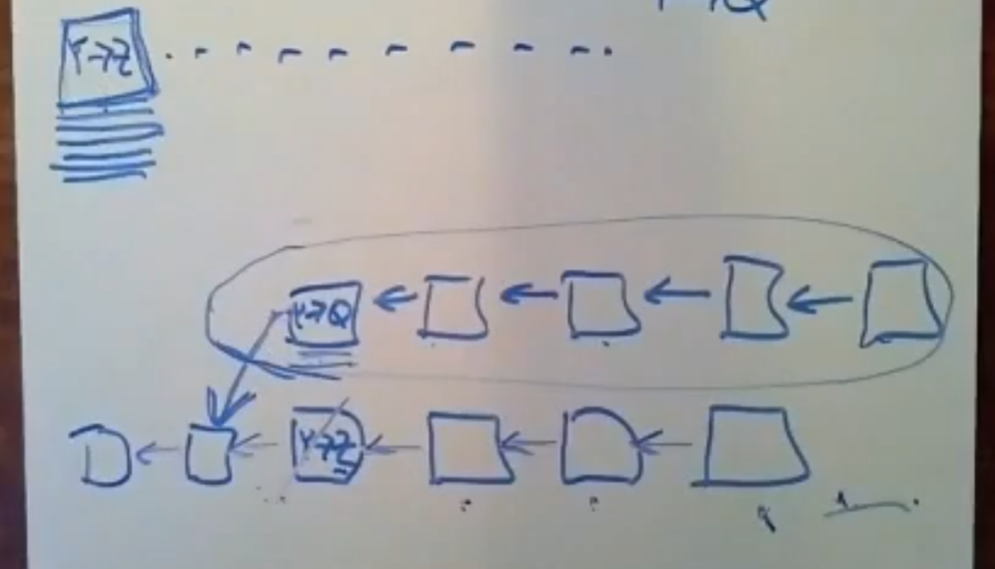 Y→Z
Y→Q
Y→Z